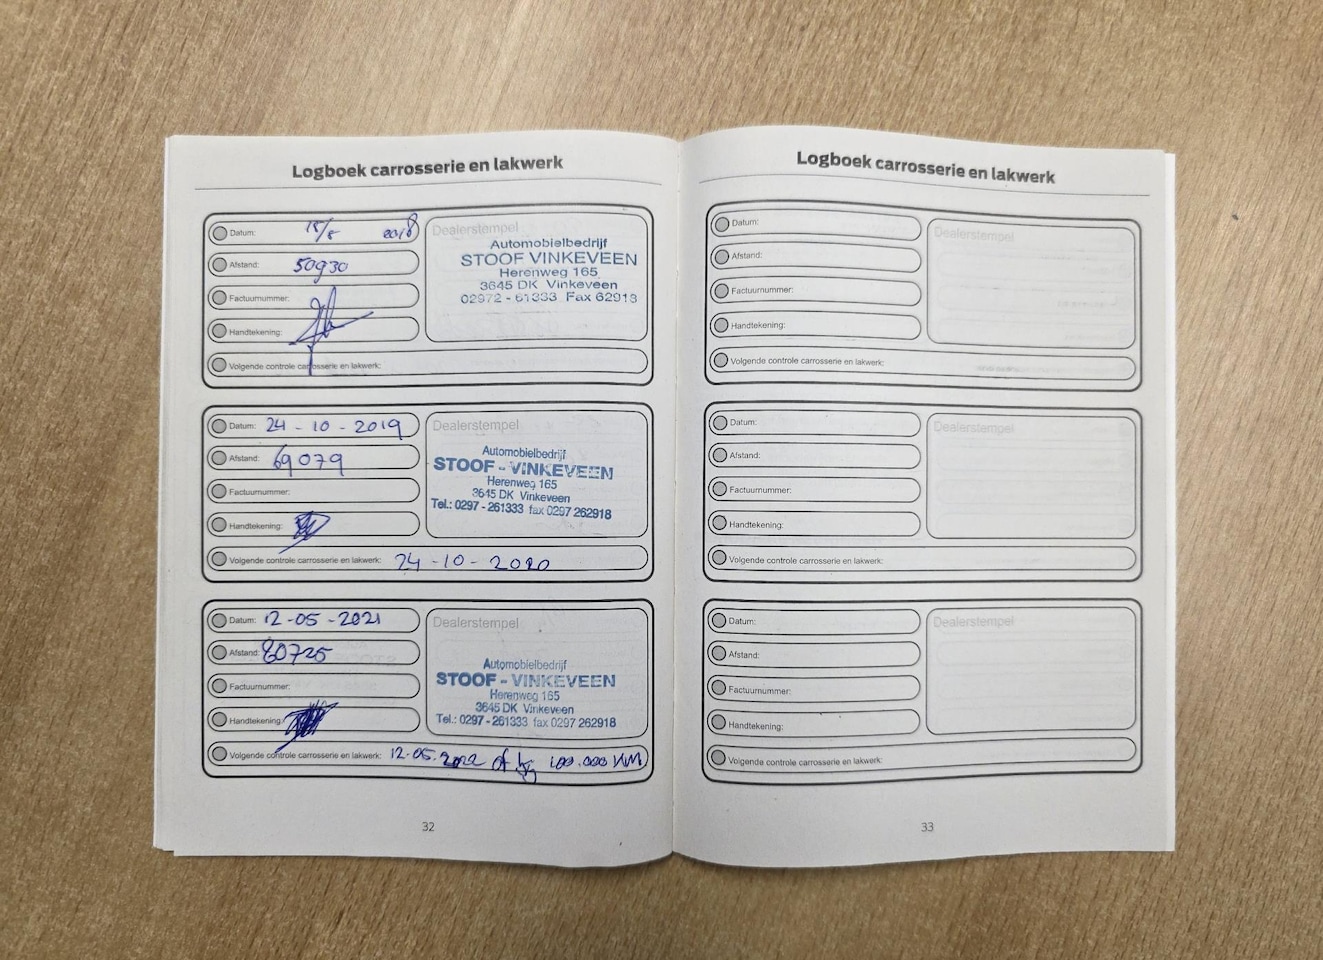 Logboek carrosserie en lakwerk
Datum: 18/5 2018
Afstand: 50930
Factuurnummer:
Handtekening:
Volgende controle carrosserie en lakwerk:
Dealerstempel
Automobielbedrijf
STOOF VINKEVEEN
Herenweg 165
3645 DK Vinkeveen
02972 - 61333 Fax 62918
Datum: 24 - 10 - 2019
Afstand: 69079
Factuurnummer:
Handtekening:
Volgende controle carrosserie en lakwerk: 24 - 10 - 2020
Dealerstempel
Automobielbedrijf
STOOF - VINKEVEEN
Herenweg 165
3645 DK Vinkeveen
Tel.: 0297 - 261333 fax 0297 262918
Datum: 12 - 05 - 2021
Afstand: 80725
Factuurnummer:
Handtekening:
Volgende controle carrosserie en lakwerk: 12-05-2022 of bij 100.000 KM
Dealerstempel
Automobielbedrijf
STOOF - VINKEVEEN
Herenweg 165
3645 DK Vinkeveen
Tel.: 0297 - 261333 fax 0297 262918
32
Logboek carrosserie en lakwerk
Datum:
Afstand:
Factuurnummer:
Handtekening:
Volgende controle carrosserie en lakwerk:
Dealerstempel
Datum:
Afstand:
Factuurnummer:
Handtekening:
Volgende controle carrosserie en lakwerk:
Dealerstempel
Datum:
Afstand:
Factuurnummer:
Handtekening:
Volgende controle carrosserie en lakwerk:
Dealerstempel
33